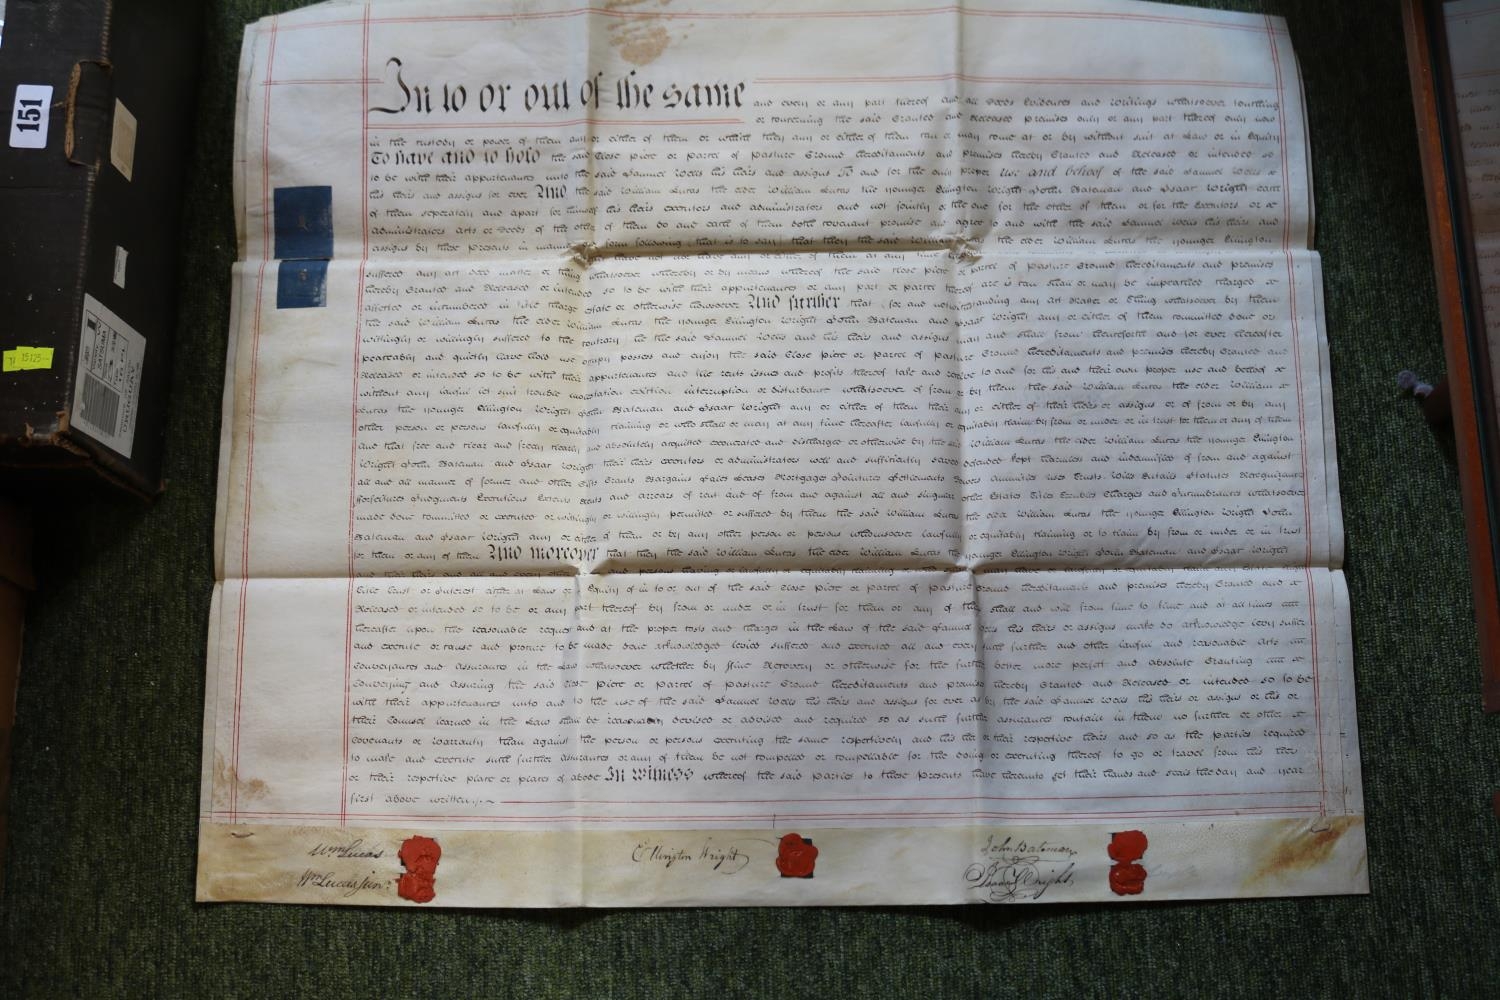 In to or out of the same and every or any part thereof and all Deeds Evidences and Writings whatsoever touching
or concerning the said Granted and Released premises only or any part thereof only now
in the custody or power of them and or either of them or which they any or either of them can or may come at or by without suit at Law or in Equity
To have and to hold the said Close piece or parcel of Pasture Ground hereditaments and premises hereby Granted and Released or intended so
to be with their appurtenances unto the said Samuel Wells his heirs and assigns To and for the only proper use and behoof of the said Samuel Wells
his heirs and assigns for ever And the said William Lucas the elder William Lucas the younger Ellington Wright John Bateman and Isaac Wright each
of them seperately and apart for himself his heirs executors and administrators and not jointly or the one for the other of them or for the Executors or
administrators acts or Deeds of the other of them do and each of them doth covenant promise and agree to and with the said Samuel Wells his heirs and
assigns by these presents in manner form following that is to say that they the said William Lucas the elder William Lucas the younger Ellington
have not nor have any or either of them at any time
suffered any act deed matter or thing whatsoever whereby or by means whereof the said Close piece or parcel of Pasture Ground hereditaments and premises
hereby Granted and Released or intended so to be with their appurtenances or any part or parcel thereof are is can shall or may be impeached charged
affected or incumbered in title charge estate or otherwise howsoever And further that for and notwithstanding any act matter or thing whatsoever by them
the said William Lucas the elder William Lucas the younger Ellington Wright John Bateman and Isaac Wright any or either of them committed done or
wittingly or willingly suffered to the contrary he the said Samuel Wells and his heirs and assigns may and shall from thenceforth and for ever hereafter
peaceably and quietly have hold use occupy possess and enjoy the said Close piece or parcel of Pasture Ground hereditaments and premises hereby Granted and
Released or intended so to be with their appurtenances and the rents issues and profits thereof take and receive to and for his and their own proper use and behoof
without any lawful let suit trouble molestation eviction interruption or disturbance whatsoever of from or by them the said William Lucas the elder William
Lucas the younger Ellington Wright John Bateman and Isaac Wright any or either of them their any or either of their heirs or assigns or of from or by any
other person or persons lawfully or equitably claiming or who shall or may at any time hereafter lawfully or equitably claim by from or under or in trust for them or any of them
and that free and clear and freely clearly and absolutely acquitted exonerated and discharged or otherwise by the said William Lucas the elder William Lucas the younger Ellington
Wright John Bateman and Isaac Wright their heirs executors or administrators well and sufficiently saved defended kept harmless and indemnified of from and against
all and all manner of former and other Gifts Grants Bargains Sales Leases Mortgages Jointures Settlements Dowers Annuities uses Trusts Wills Entails Statutes Recognizances
Forfeitures Judgments Executions Extents Rents and arrears of rent and of from and against all and singular other Estates Titles Troubles Charges and Incumbrances whatsoever
made done committed or executed or wittingly or willingly permitted or suffered by them the said William Lucas the elder William Lucas the younger Ellington Wright John
Bateman and Isaac Wright any or either of them or by any other person or persons whomsoever lawfully or equitably claiming or to claim by from or under or in trust
for them or any of them And moreover that they the said William Lucas the elder William Lucas the younger Ellington Wright John Bateman and Isaac Wright
title trust or Interest either at Law or Equity of in to or out of the said Close piece or parcel of Pasture Ground hereditaments and premises hereby Granted and
Released or intended so to be or any part thereof by from or under or in trust for them or any of them shall and will from time to time and at all times
hereafter upon the reasonable request and at the proper costs and charges in the Law of the said Samuel Wells his heirs or assigns make do acknowledge levy suffer
and execute or cause and procure to be made done acknowledged levied suffered and executed all and every such further and other lawful and reasonable Acts
Conveyances and Assurances in the Law whatsoever whether by Fine Recovery or otherwise for the further better more perfect and absolute Granting
Conveying and Assuring the said Close piece or parcel of Pasture Ground hereditaments and premises hereby Granted and Released or intended so to be
with their appurtenances unto and to the use of the said Samuel Wells his heirs and assigns for ever as by the said Samuel Wells his heirs or assigns or his or
their Counsel learned in the Law shall be reasonably devised or advised and required so as such further assurances contain in them no further or other
Covenants or Warranty than against the person or persons executing the same respectively and his her or their respective heirs and so as the parties required
to make and execute such further assurances or any of them be not compelled or compellable for the doing or executing thereof to go or travel from his her
or their respective place or places of abode In Witness whereof the said parties to these presents have hereunto set their hands and seals the day and year
first above written
Wm Lucas
Wm Lucas Junr
Ellington Wright
John Bateman
Isaac Wright
151